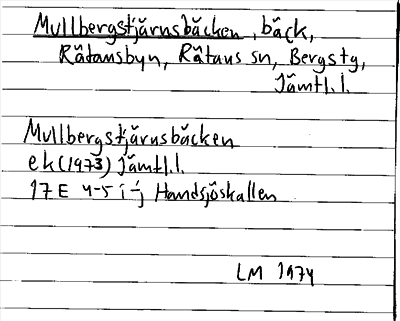 Mullbergstjärnsbäcken, bäck,
Rätansbyn, Rätans sn, Bergs tg,
Jämtl.l.
Mullbergstjärnsbäcken
ek (1973) Jämtl.l.
17E 4-5 i-j Handsjöskallen
LM 1974